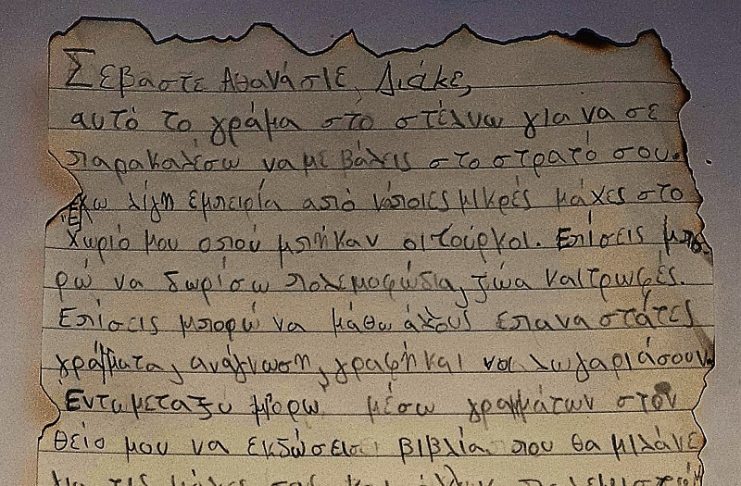 Σεβαστέ Αθανάσιε, Διάκε,
αυτό το γράμα στό στέλνω για να σε
παρακαλέσω να με βάλεις στο στρατό σου.
Έχω λίγη εμπειρία από κάποιες μικρές μάχες στο
χωριό μου οπού μπήκαν οι τούρκοι. Επίσεις μπο-
ρώ να δωρίσω πολεμοφώδια, ζώα και τρωφές.
Επίσεις μπορώ να μάθω άλλους επαναστάτες
γράμματα, ανάγνωση, γραφή και να λωγαριάσουν.
Εντωμεταξύ μπορώ μέσω γραμμάτων στον
θείο μου να εκδώσεισ βιβλία που θα μιλάνε
για τις μάχες σας και άλλων